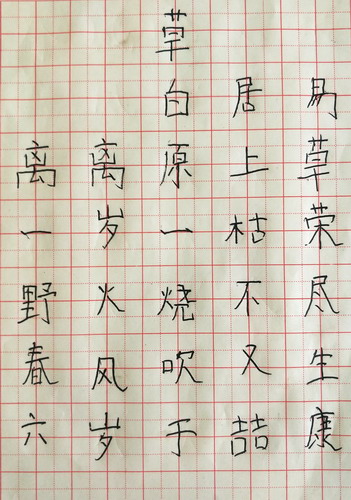 草
白居易
离离原上草
一岁一枯荣
野火烧不尽
春风吹又生
六岁于喆康